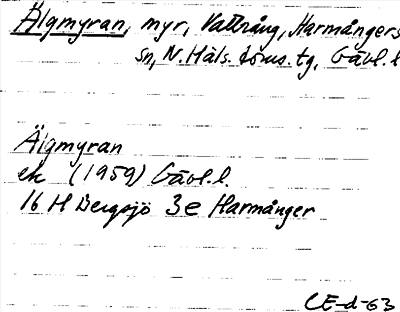 Älgmyran, myr, Vattrång, Harmångers
sn, N. Häls. doms. tg, Gävl. l.
Älgmyran
ek (1959) Gävl. l.
16 H Bergsjö 3e Harmånger
CE-d-63